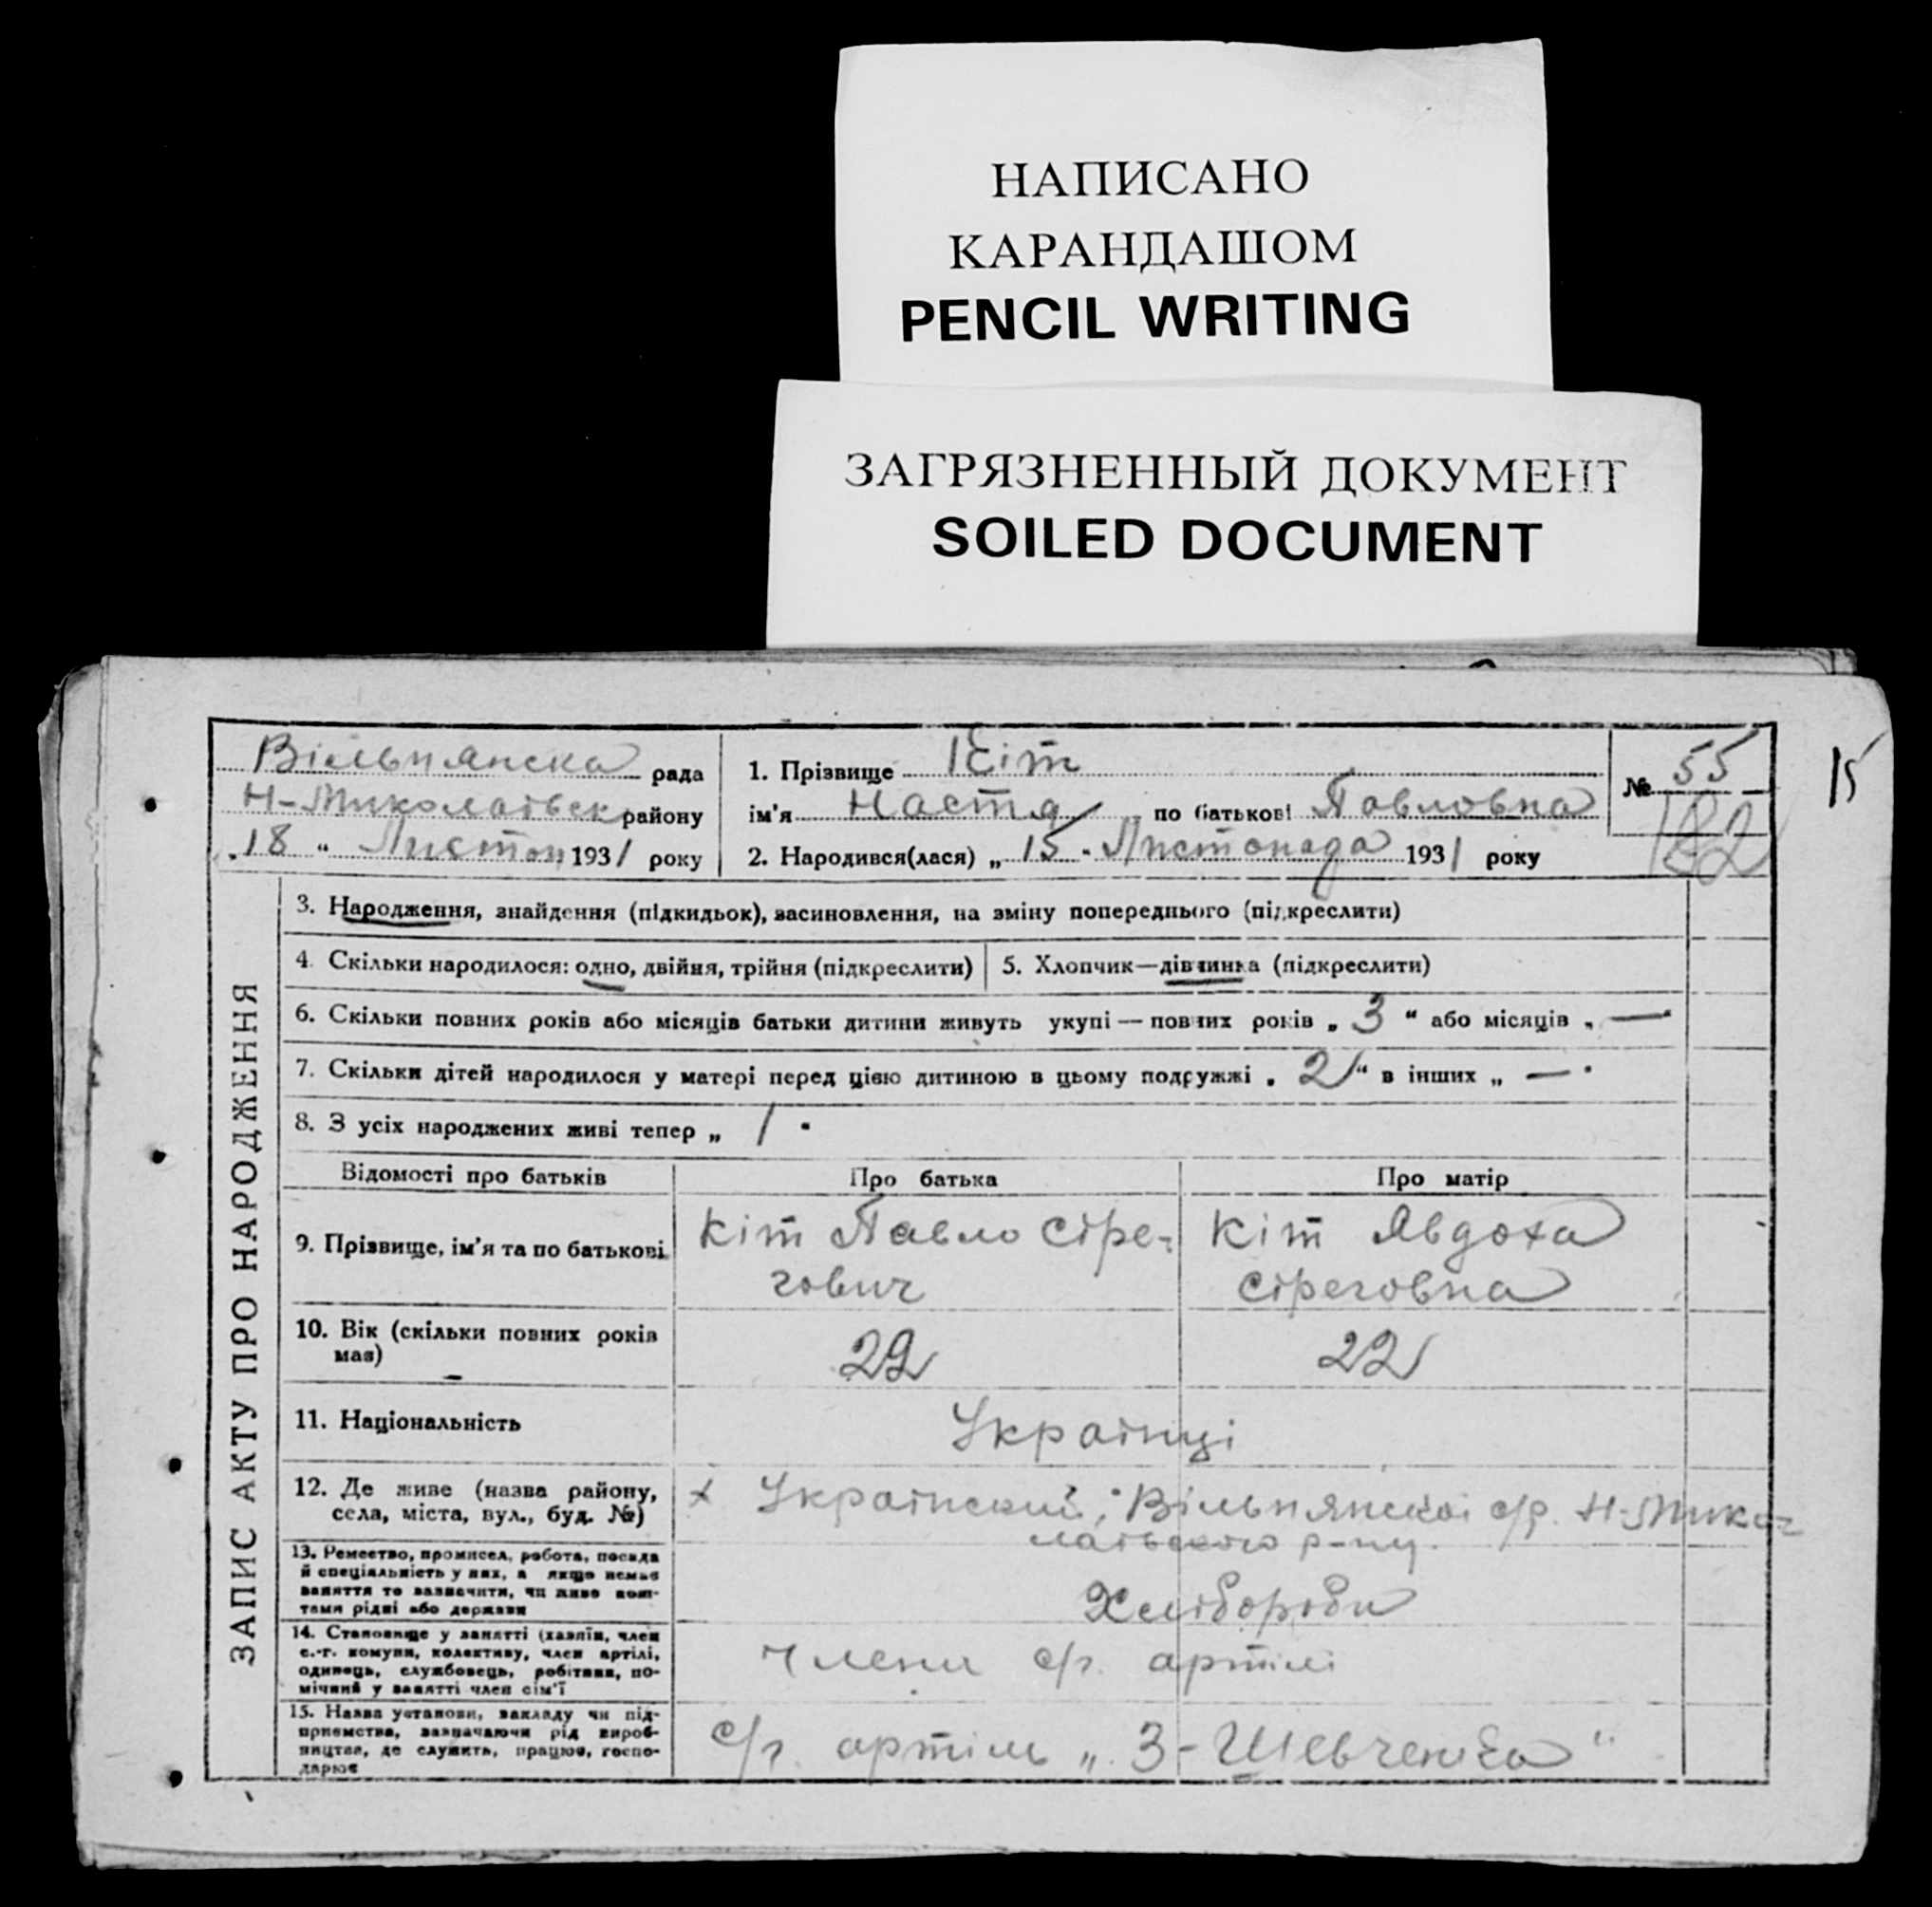 НАПИСАНО
КАРАНДАШОМ
PENCIL WRITING
ЗАГРЯЗНЕННЫЙ ДОКУМЕНТ
SOILED DOCUMENT
Вільнянска рада
Н-Миколаівськ району
„18 “ Листоп 1931 року
1. Прізвище Кіт
ім'я Настя по батькові Павловна
2. Народився(лася) „ 15 “ Листопада 1931 року
№ 55
182
15
ЗАПИС АКТУ ПРО НАРОДЖЕННЯ
3. Народження, знайдення (підкидьок), засиновлення, на зміну попереднього (підкреслити)
4. Скільки народилося: одно, двійня, трійня (підкреслити)
5. Хлопчик—дівчинка (підкреслити)
6. Скільки повних років або місяців батьки дитини живуть укупі — повних років „ 3 “ або місяців „ — “
7. Скільки дітей народилося у матері перед цією дитиною в цьому подружжі „ 2 “ в інших „ — “
8. З усіх народжених живі тепер „ 1 “
Відомості про батьків Про батька Про матір
9. Прізвище, ім'я та по батькові
Кіт Павло Сіре-
гович
Кіт Явдоха
Сіреговна
10. Вік (скільки повних років
має)
22
22
11. Національність
Украінці
12. Де живе (назва району,
села, міста, вул., буд. №)
х Украінский, Вільнянскоі с/р. Н-Мико-
лаівського р-ну.
13. Ремество, промисел, робота, посада
й спеціяльність у них, а якщо немає
заняття то зазначити, чи живе кош-
тами рідні або держави
Хлібороби
14. Становище у занятті (хазяїн, член
с.-г. комуни, колективу, член артілі,
одинець, службовець, робітник, по-
мічний у занятті член сім'ї
Члени с/г. артілі
15. Назва установи, закладу чи під-
приємства, зазначаючи рід вироб-
ництва, де служить, працює, госпо-
дарює
с/г. артіль „ З-Шевченка “